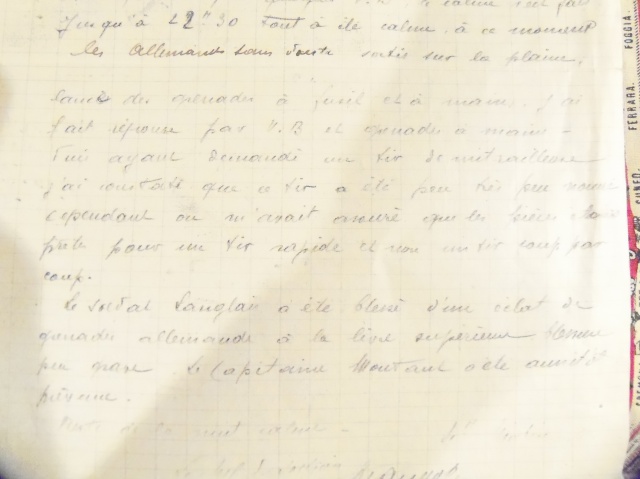 Jusqu'à 22h30 tout a été calme. à ce moment
les allemands sans doute sortis sur la plaine,
lancé des grenades à fusil et à mains. J'ai
fait réponse par V.B et grenades à main -
ayant demandé un tir de mitrailleuse
j'ai constaté que ce tir a été peu très peu nourri
cependant on m'avait assuré que les pièces étaient
prêtes pour un tir rapide et non un tir coup par
coup.
Le soldat Langlais a été blessé d'un éclat de
grenade allemande à la lèvre supérieure blessure
peu grave. Le Capitaine Montane a été aussitôt
prévenu.
de la nuit calme -
FOGGIA.
FERRARA.
CUNEO.